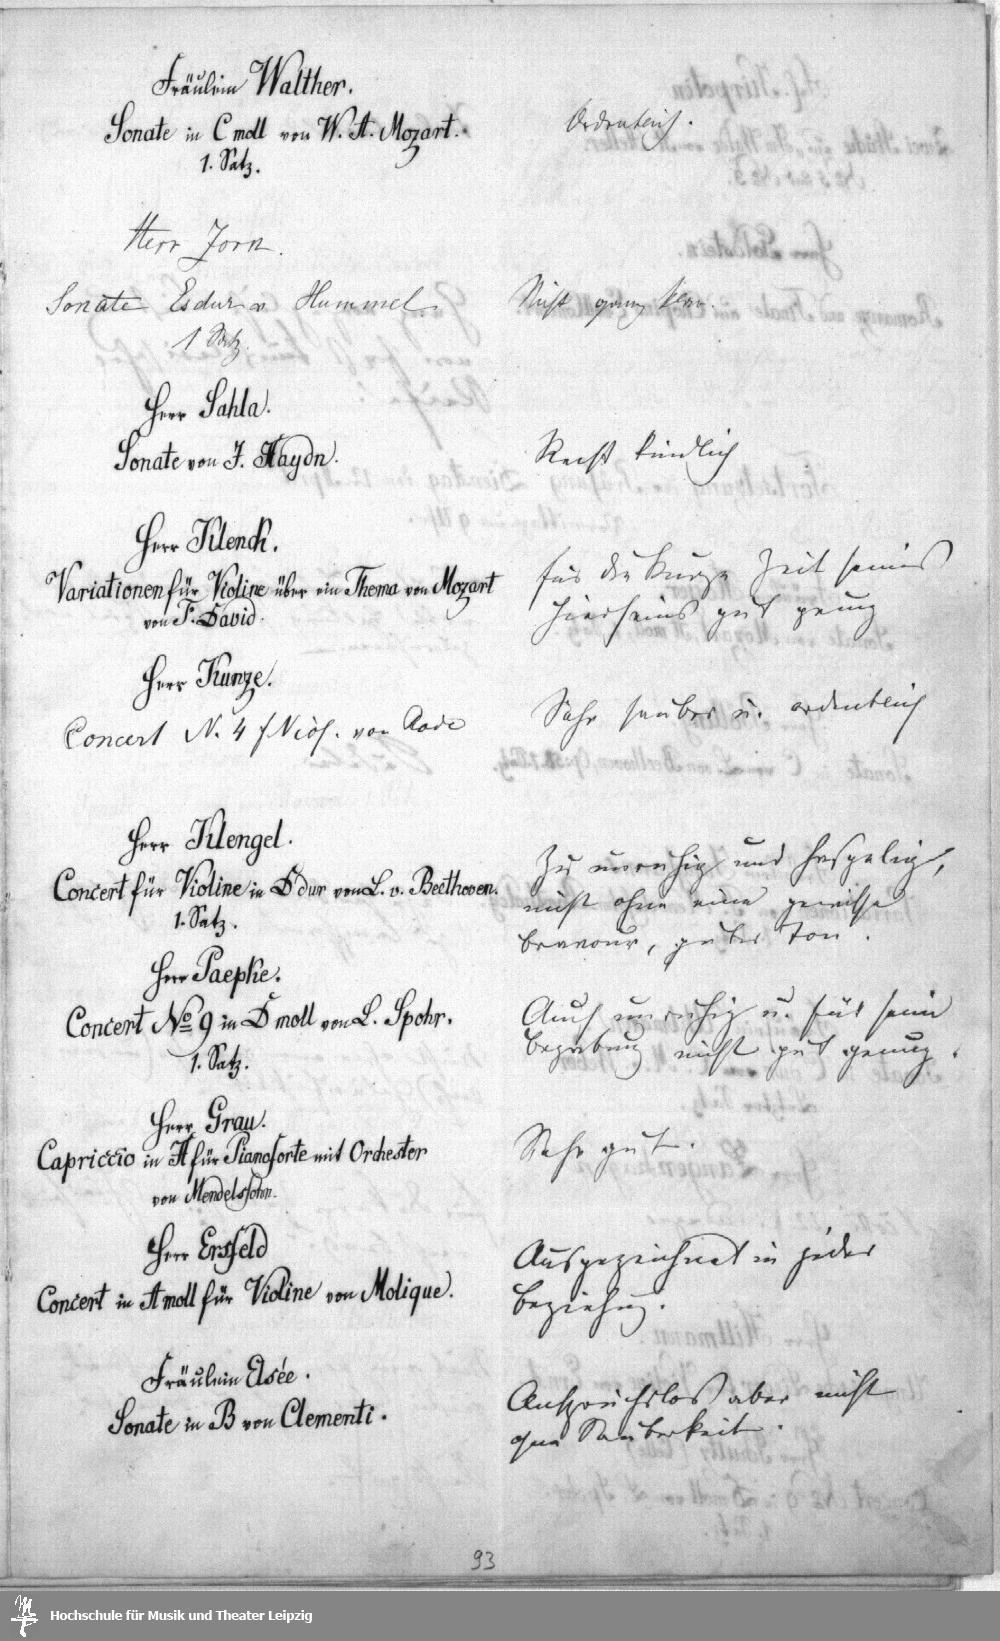 Fräulein Walther.
Sonate in C moll von W. A. Mozart.
1. Satz.
Ordentlich.
Herr Jorn.
Sonate Esdur v Hummel.
1 Satz.
Nicht ganz klar.
Herr Sahla.
Sonate von J. Haydn.
Recht kindlich
Herr Klenck.
Variationen für Violine über ein Thema von Mozart
von F. David.
für die kurze Zeit seines
Hierseins gut genug
Herr Kunze.
Concert N. 4 f Viol. von Rode
Sehr sauber u. ordentlich
Herr Klengel.
Concert für Violine in D dur von L. v. Beethoven.
1. Satz.
Zu unruhig und haspelig,
nicht ohne eine gewisse
bravour, guter Ton.
Herr Paepke.
Concert No 9 in D moll von L. Spohr.
1. Satz.
Auch unruhig u. für seine
Begabung nicht gut genug.
Herr Grau.
Capriccio in A für Pianoforte mit Orchester
von Mendelssohn.
Sehr gut.
Herr Ersfeld
Concert in A moll für Violine von Molique.
Ausgezeichnet in jeder
Beziehung.
Fräulein Elsée.
Sonate in B von Clementi.
Anspruchslos aber nicht
ohne Sauberkeit.
93
Hochschule für Musik und Theater Leipzig